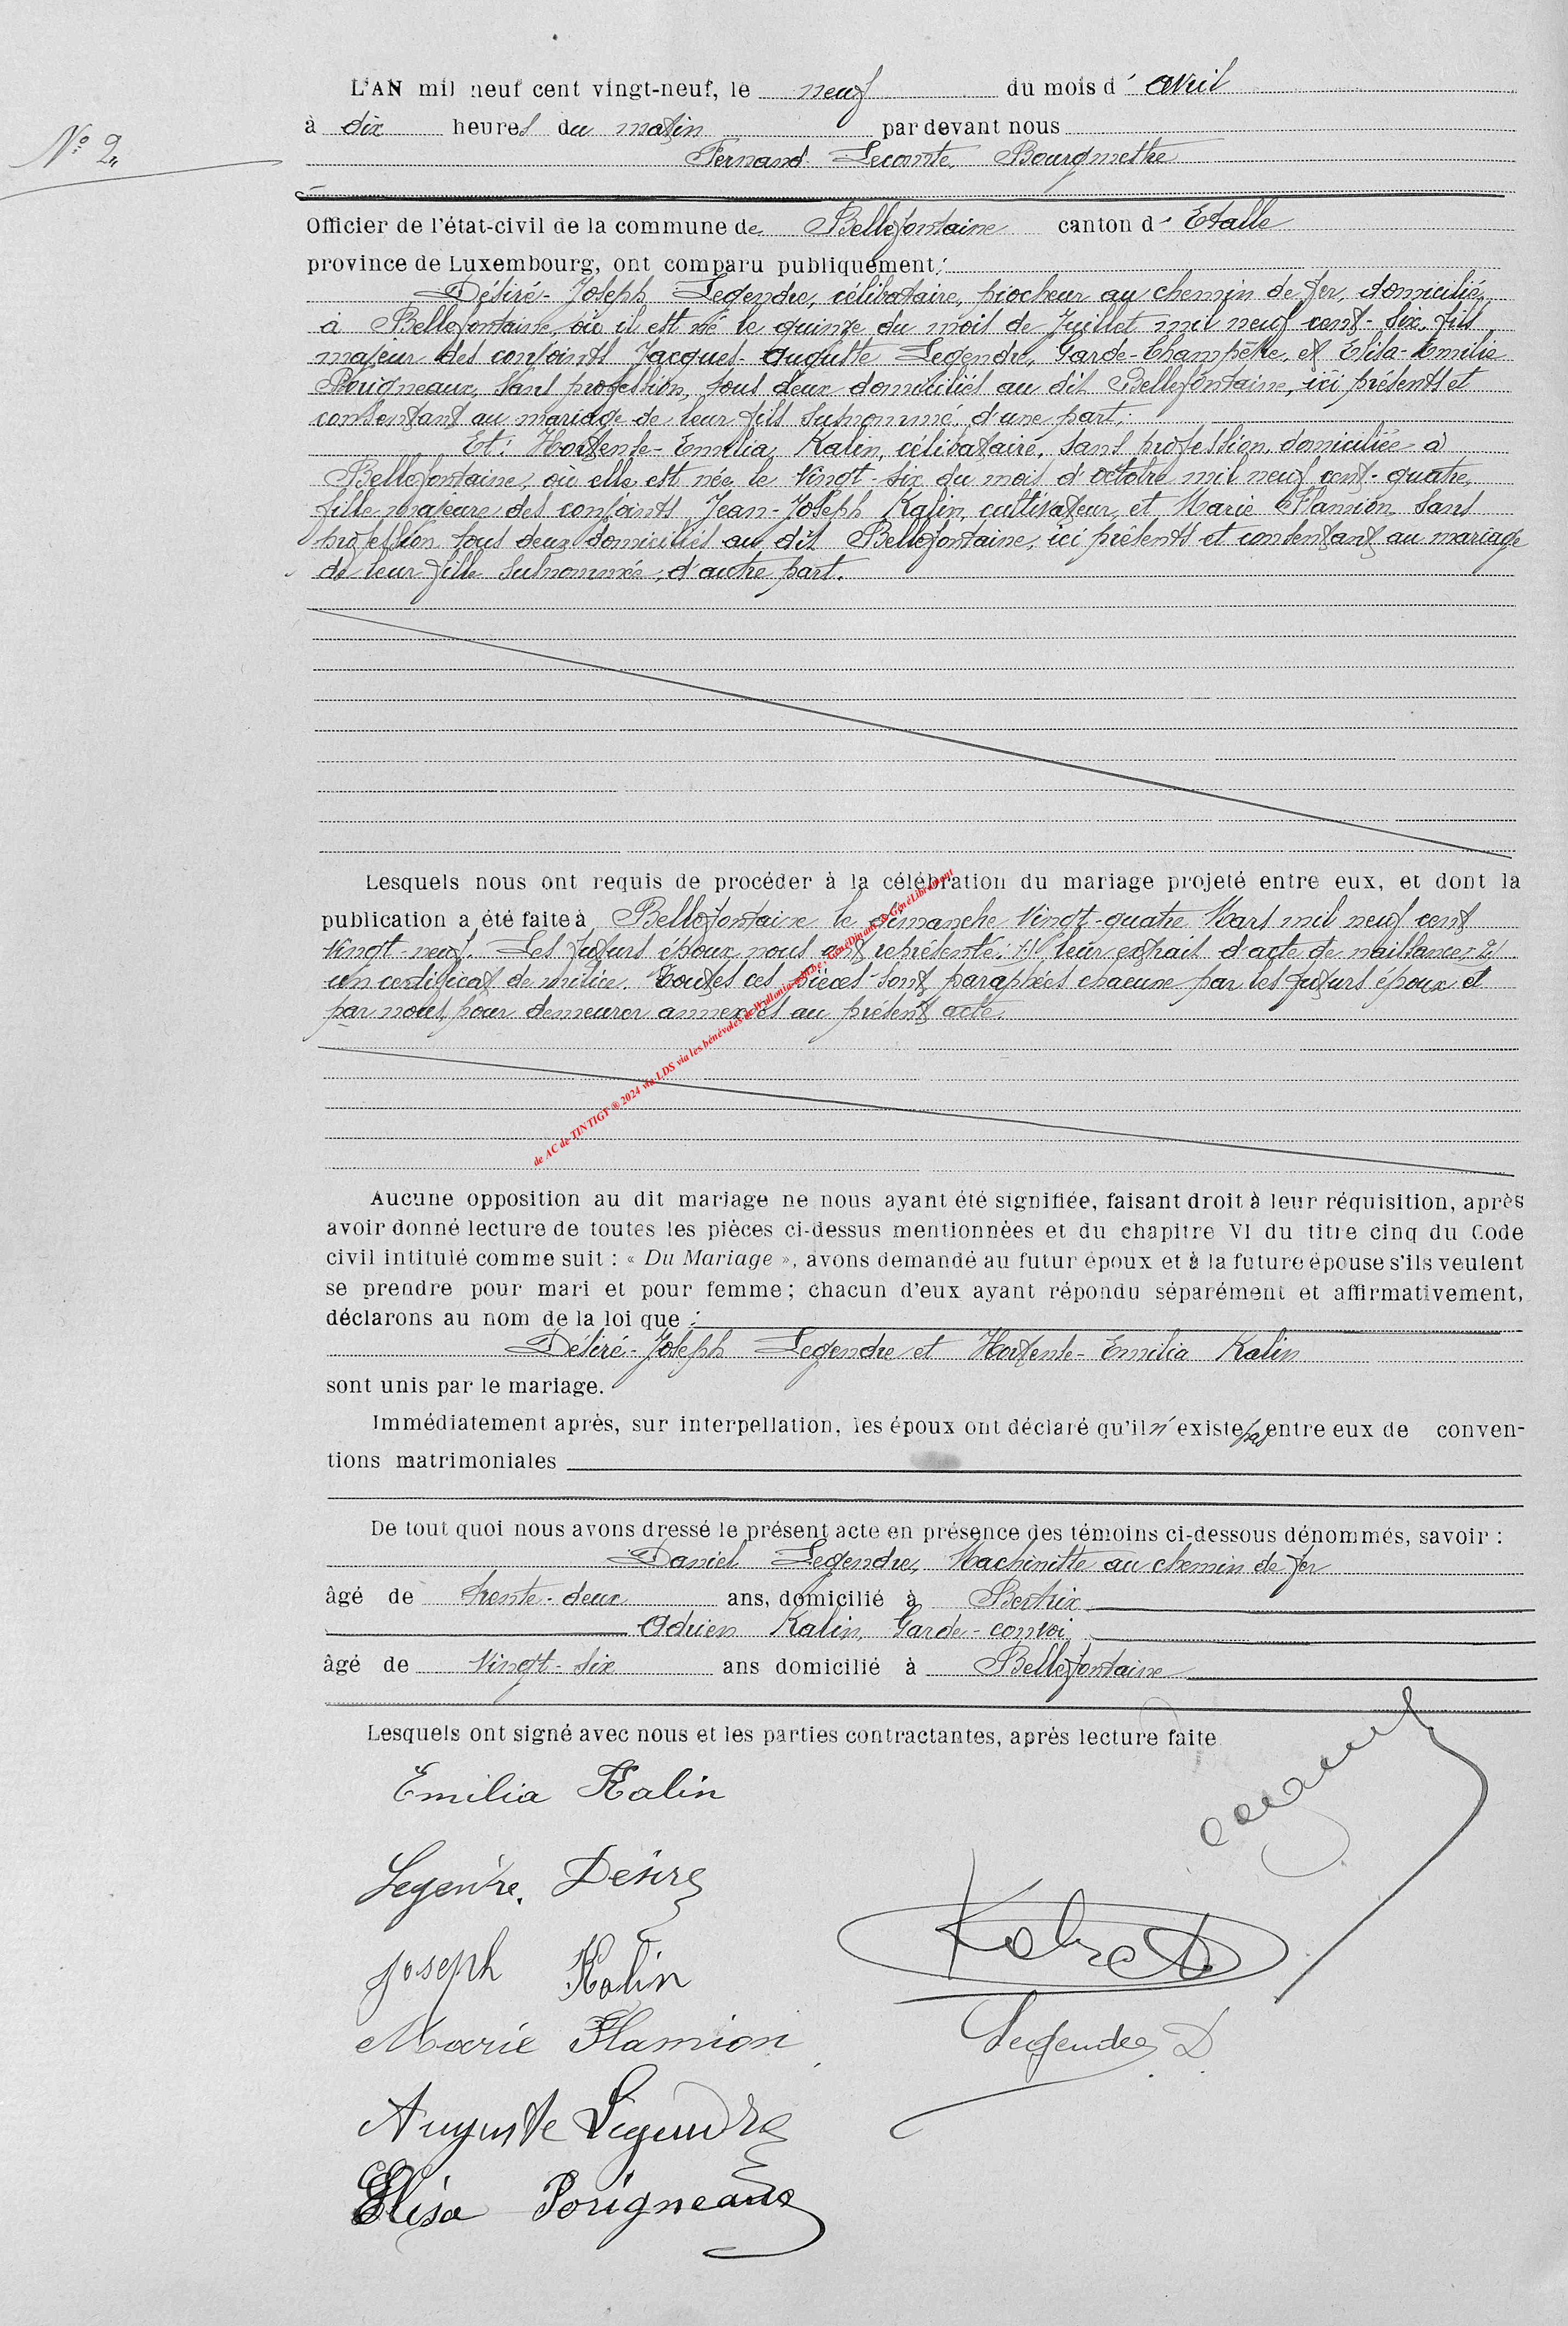 L'AN mil neuf cent vingt-neuf, le neuf du mois d' avril
N° 2.
à dix heures du matin par devant nous
Fernand Lecomte, Bourgmestre
Officier de l'état-civil de la commune de Bellefontaine canton d' Etalle
province de Luxembourg, ont comparu publiquement :
Désiré-Joseph Legendre, célibataire, piocheur au chemin de fer, domicilié
à Bellefontaine, où il est né le quinze du mois de Juillet mil neuf cent-six, fils
majeur des conjoints Jacques-Auguste Legendre, Garde-Champêtre, et Elisa-Emilie
Porigneaux, sans profession, tous deux domiciliés au dit Bellefontaine, ici présents et
consentant au mariage de leur fils susnommé, d'une part ;
Et : Hortense-Emilia Kalin, célibataire, sans profession, domiciliée à
Bellefontaine, où elle est née le vingt-six du mois d'octobre mil neuf cent-quatre,
fille majeure des conjoints Jean-Joseph Kalin, cultivateur, et Marie Flamion sans
profession tous deux domiciliés au dit Bellefontaine, ici présents et consentant au mariage
de leur fille susnommée, d'autre part.
Lesquels nous ont requis de procéder à la célébration du mariage projeté entre eux, et dont la
publication a été faite à Bellefontaine le dimanche vingt-quatre Mars mil neuf cent
vingt-neuf. Les futurs époux nous ont représenté : 1) leur extrait d'acte de naissance ; 2)
un certificat de milice. Toutes ces pièces sont paraphées chacune par les futurs époux et
par nous, pour demeurer annexées au présent acte.
de AC de TINTIGY ® 2024 via LDS via les bénévoles de Wallonia-asbl.be : GénéDinant & GénéLibramont
Aucune opposition au dit mariage ne nous ayant été signifiée, faisant droit à leur réquisition, après
avoir donné lecture de toutes les pièces ci-dessus mentionnées et du chapitre VI du titre cinq du Code
civil intitulé comme suit : « Du Mariage », avons demandé au futur époux et à la future épouse s'ils veulent
se prendre pour mari et pour femme ; chacun d'eux ayant répondu séparément et affirmativement,
déclarons au nom de la loi que :
Désiré-Joseph Legendre et Hortense-Emilia Kalin
sont unis par le mariage.
Immédiatement après, sur interpellation, les époux ont déclaré qu'il n'existe pas entre eux de conven-
tions matrimoniales
De tout quoi nous avons dressé le présent acte en présence des témoins ci-dessous dénommés, savoir :
Daniel Legendre, Machiniste au chemin de fer
âgé de trente-deux ans, domicilié à Bertrix
Adrien Kalin, Garde-convoi
âgé de vingt-six ans domicilié à Bellefontaine
Lesquels ont signé avec nous et les parties contractantes, après lecture faite
Emilia Kalin
Legendre. Désiré
Joseph Kalin
Marie Flamion
Legendre D.
Auguste Legendre
Elisa Porigneaux